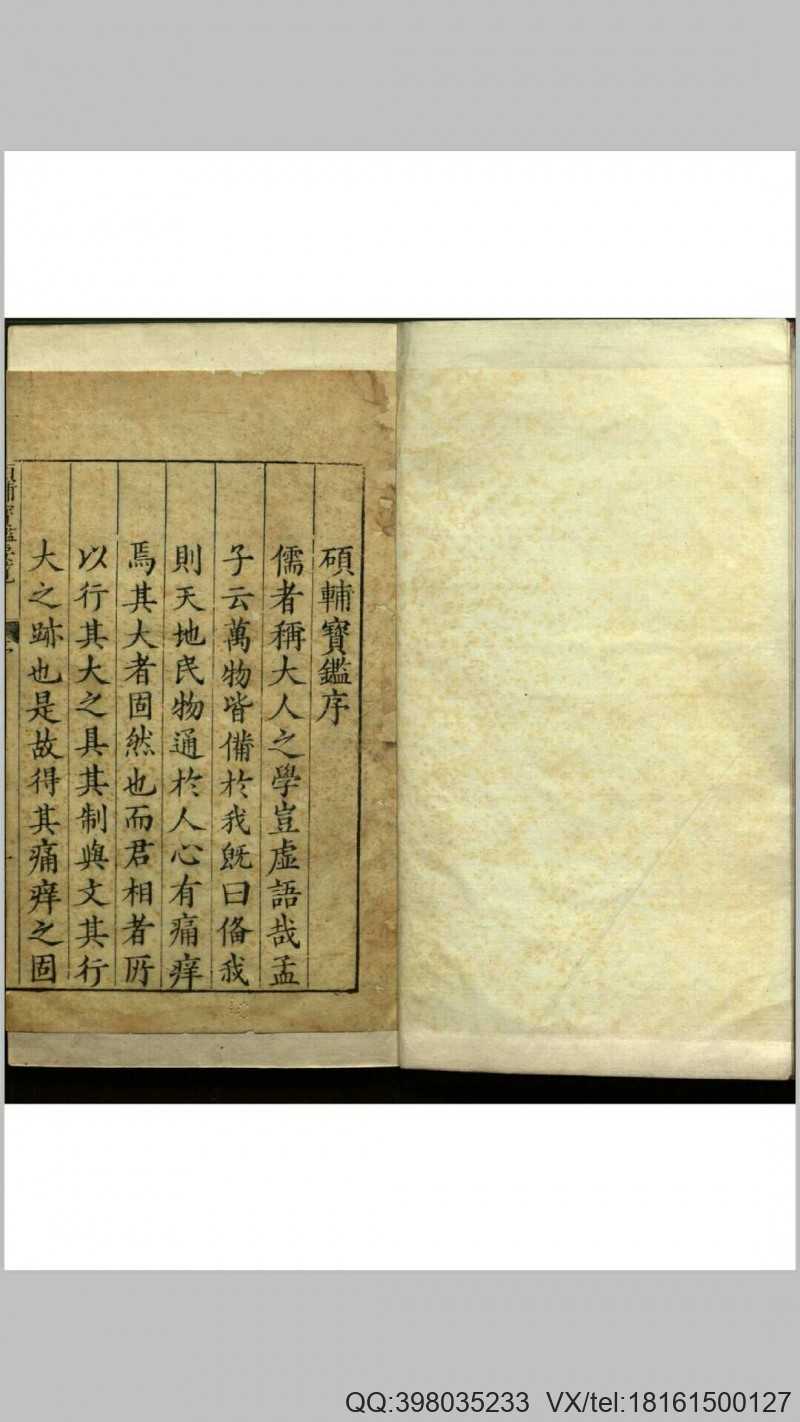 碩輔寶鑑序
儒者稱大人之學豈虛語哉孟
子云萬物皆備於我旣曰俻我
則天地民物通於人心有痛痒
焉其大者固然也而君相者所
以行其大之具其制與文其行
大之跡也是故得其痛痒之固
QQ:398035233 VX/tel:18161500127